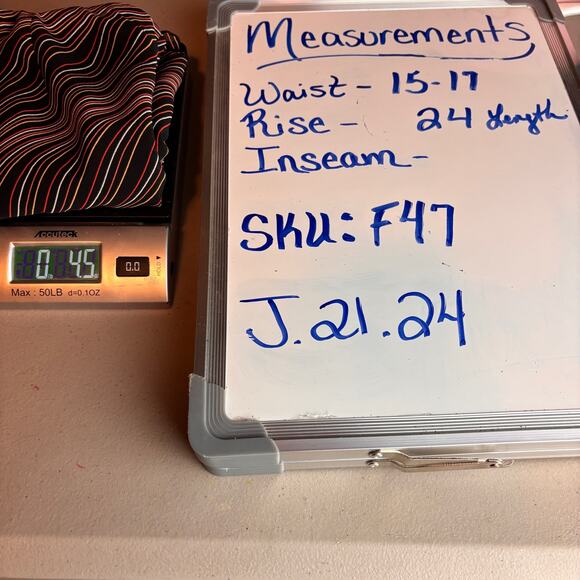 Measurements
Waist - 15-17
Rise - 24 Length
Inseam -
SKU: F47
J.21.24
Accuteck
0 4.5
0.0
HOLD
Max : 50LB d=0.1OZ